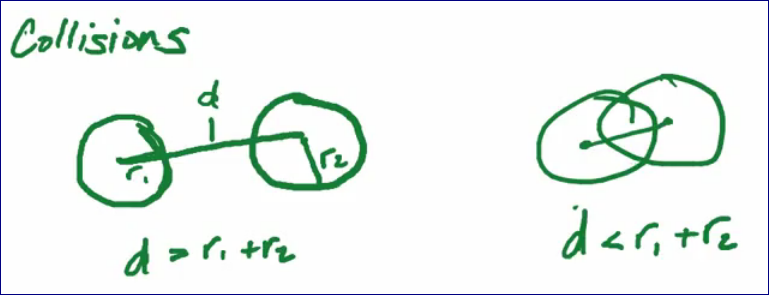 Collisions
d
r₁
r₂
d > r₁ + r₂
d < r₁ + r₂